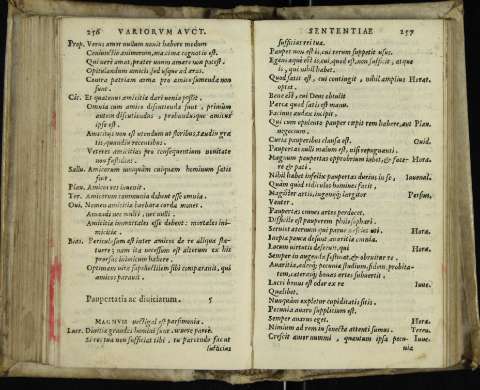 256 VARIORVM AVCT.
Prop. Verus amor nullum novit habere modum
Coniunctio animorum, maxima cognatio est.
Qui verè amat, præter unum amare non potest.
Opitulandum amicis, sed usque ad aras.
Contra patriam arma pro amico sumenda non sunt.
Cic. Est quatenus amicitiæ dari venia possit.
Omnia cum amico discutienda sunt, primùm
autem discutiendus, probandusque amicus
ipse est.
Amicitiis non est utendum ut floribus, tandiu gra
tis, quandiu recentibus.
Veteres amicitias pro consequentium novitate
non fastidias.
Sallu. Amicorum unquam cuiquam hominum satis
fuit.
Plau. Amicus res invenit.
Ter. Amicorum communia debent esse omnia.
Oui. Nomen amicitiæ barbara corda movet.
Amandi nec nulli, nec nulli.
Amicitiæ immortales esse debent: mortales ini-
micitiæ.
Bias. Periculosum est inter amicos de re aliqua sta-
tuere; nam ita necesse est alterum ex his
prorsus inimicum habere.
Optimam vitæ supellectilem sibi comparavit, qui
amicos paravit.
Paupertatis ac divitiarum. 5
MAGNVM vectigal est parsimonia.
Lucr. Divitiæ grandes homini sunt, vivere parcè.
Si rectua non sufficiat tibi, tu parcendo facut
sufficias
SENTENTIAE 257
sufficias rei tuæ.
Pauper non est is, cui rerum suppetit usus.
Egens æquè est is, cui, quod est, non sufficit, atque
is, qui nihil habet.
Quod satis est, cui contingit, nihil amplius Horat.
optet.
Bene est, cui Deus obtulit
Parca quod satis est manu.
Facinus audax incipit.
Qui cum opulento pauper cœpit rem habere, aut Plau.
negocium.
Curta pauperibus clausa est. Ouid.
Paupertas nulli malum est, nisi repugnanti.
Magnum paupertas opprobrium iubet, & face- Hora.
re & pati.
Nihil habet infelix paupertas durius in se, Iuvenal.
Quàm quòd ridiculos homines facit,
Magister artis, ingeniique largitor Persius,
Venter.
Paupertas omnes artes perdocet.
Difficile est pauperem philosophari.
Serviet æternum qui parvo nesciet uti. Hora.
Inopiæ pauca desunt, avaritiæ omnia.
Locum virtutis deserit, qui Hora.
Semper in augenda festinat, & obruitur re.
Avaritia, adeoque pecuniæ studium, fidem, probita-
tem, cæterasque bonas artes subvertit.
Lucri bonus est odor ex re Iuve.
Qualibet.
Nunquam expletur cupiditatis sitis.
Pecunia avaro supplicium est.
Semper avarus eget. Hora.
Nimium ad rem in senecta attenti sumus. Teren.
Crescit amor nummi, quantum ipsa pecu- Iuve.
nia